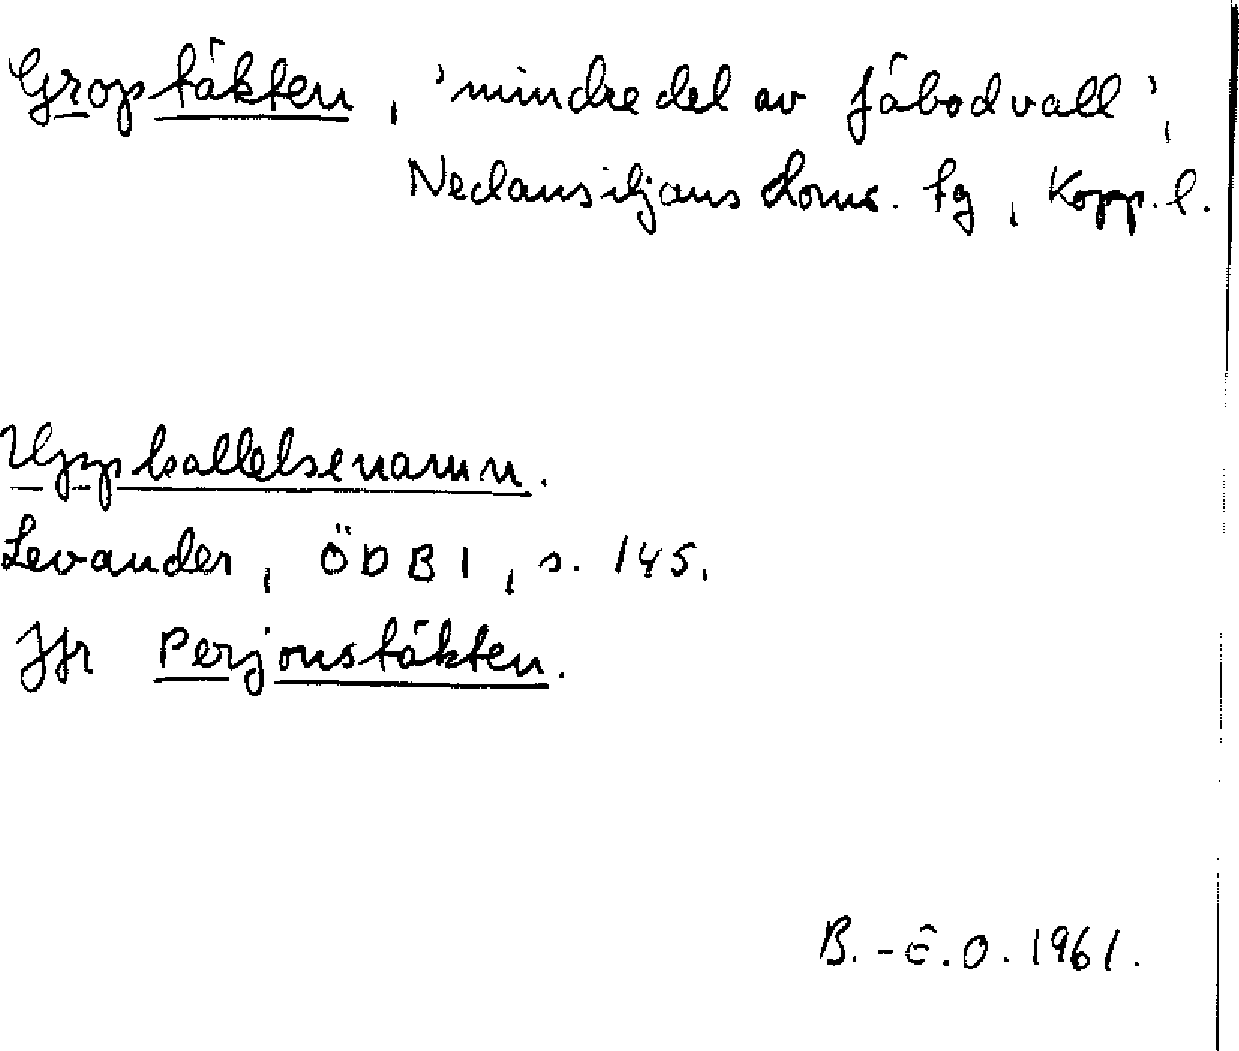 Groptäkten, 'mindre del av fäbodvall',
Nedansiljans doms. tg, Kopp. l.
Uppkallelsenamn.
Levander, ÖDB I, s. 145.
Jfr Perjonstäkten.
B.-E.O. 1961.